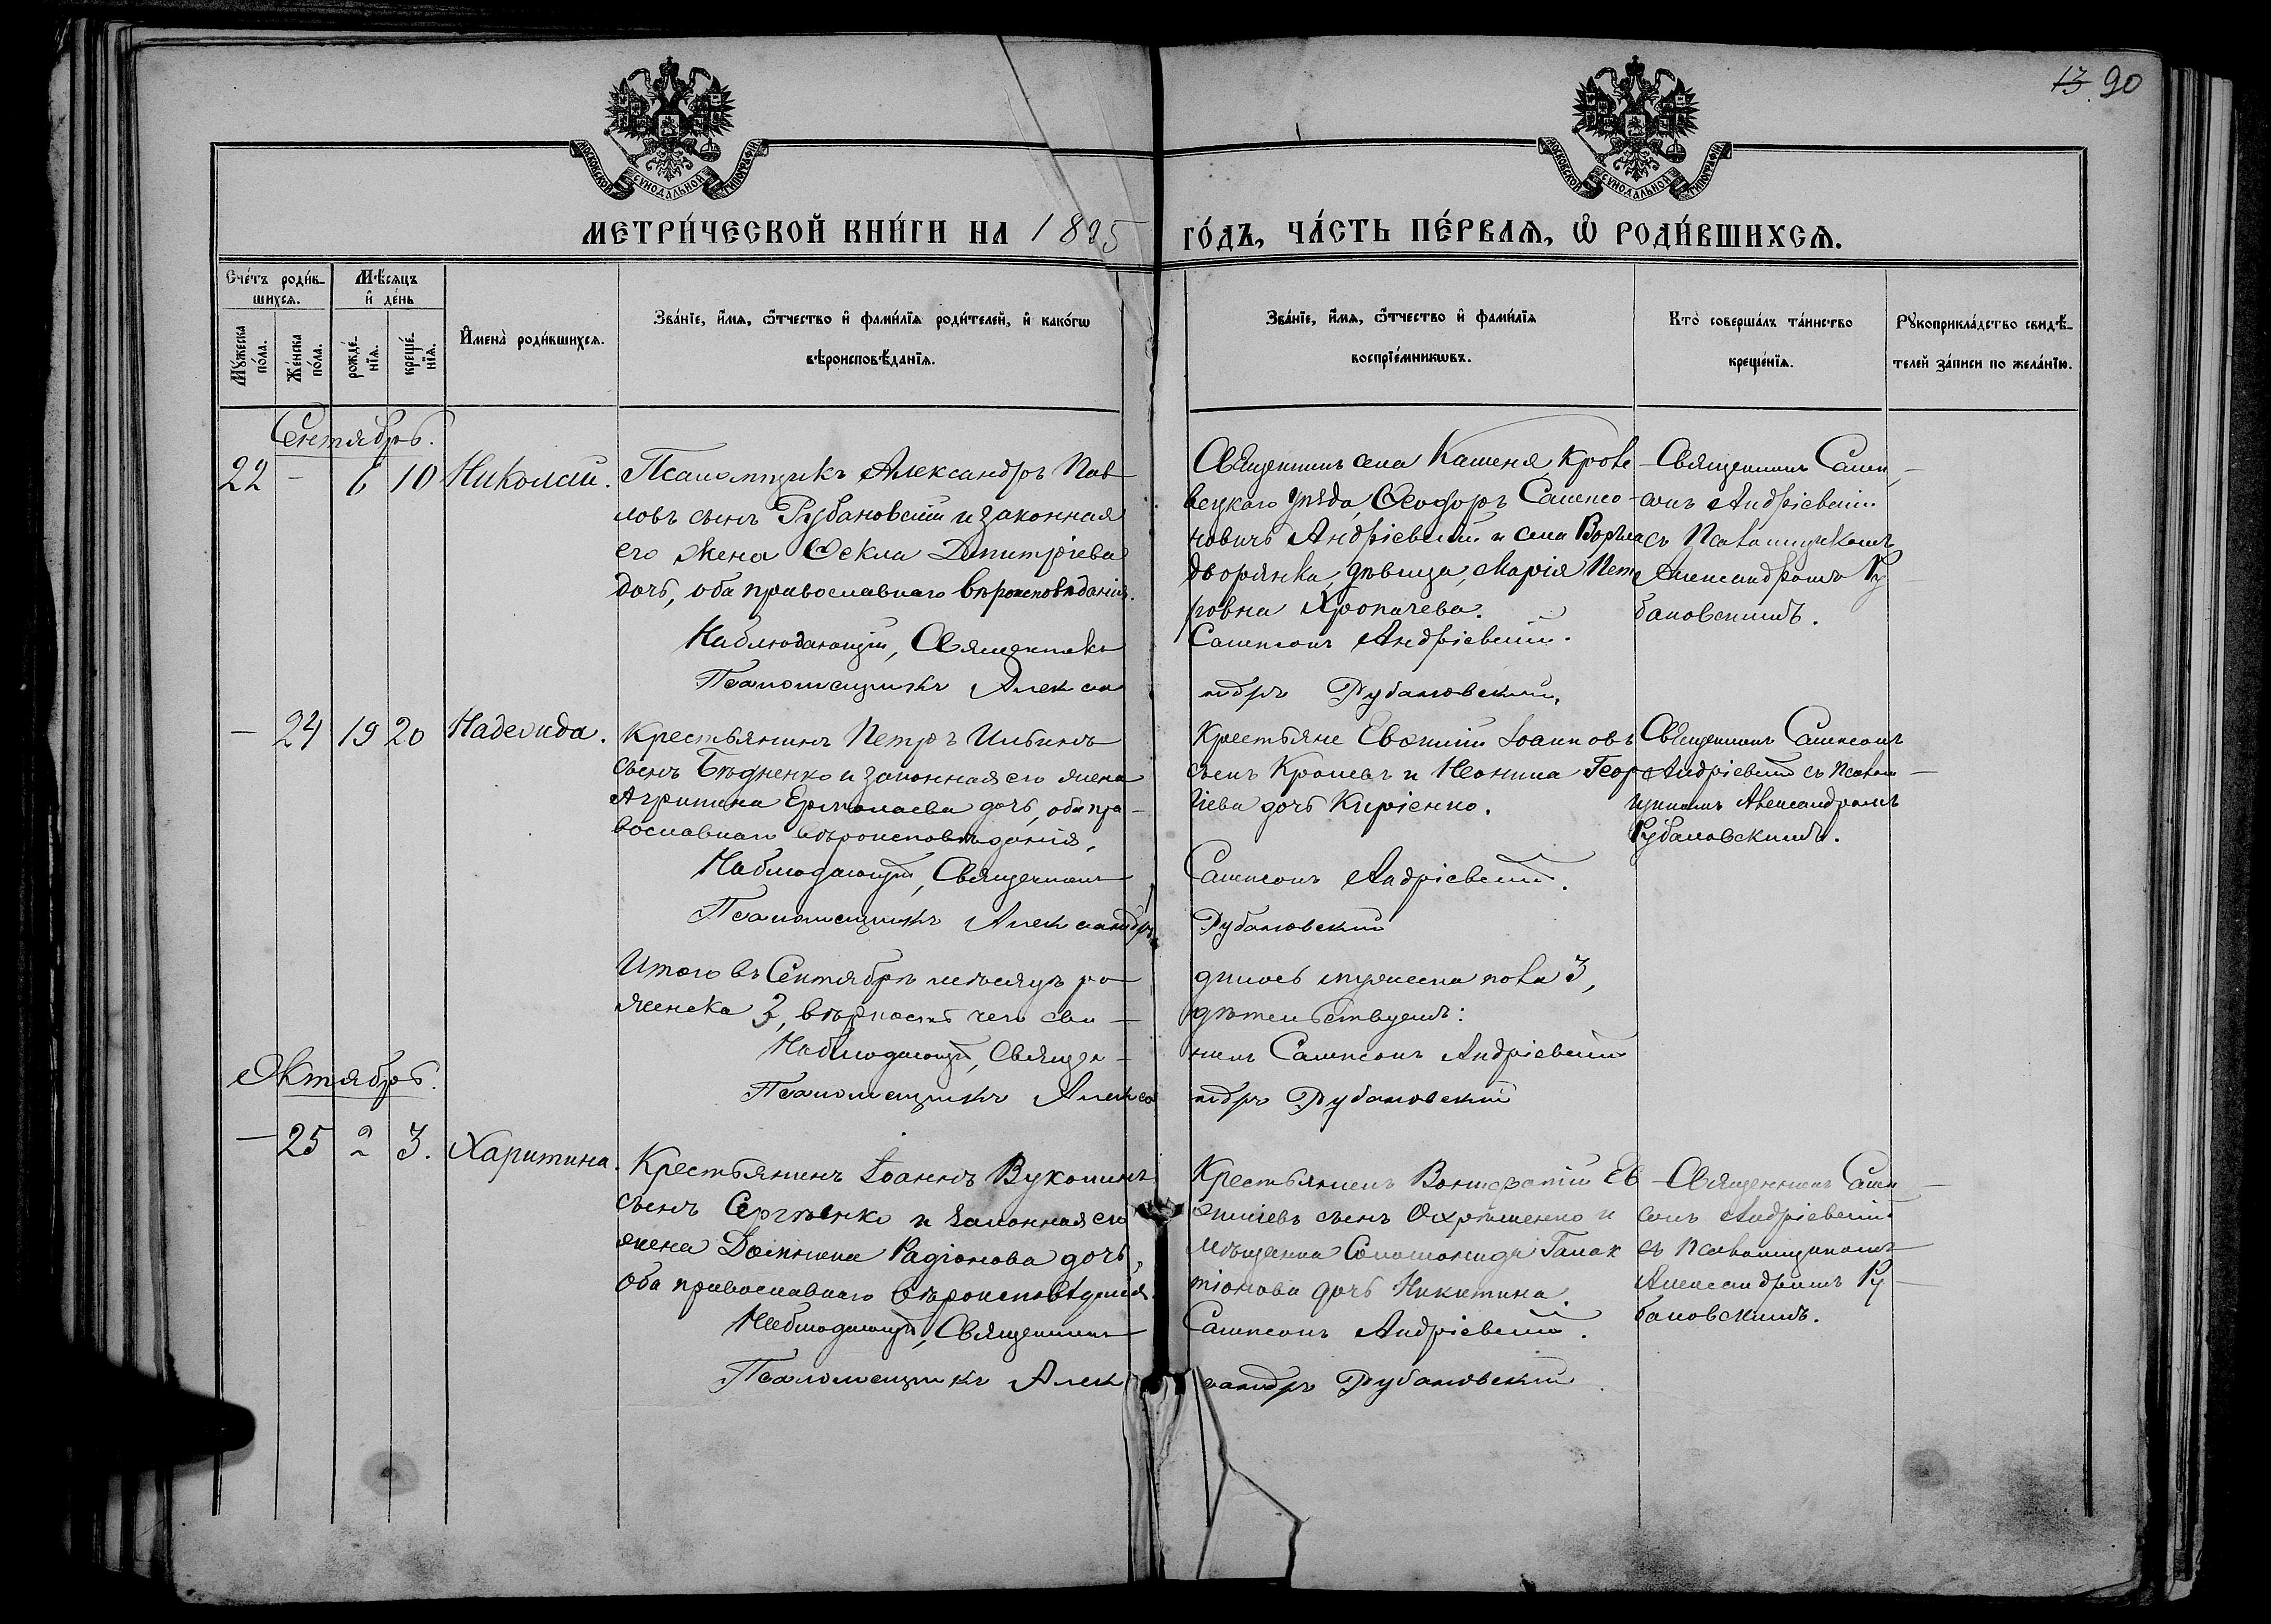 13 90
МОСКОВСКОЙ СУНОДАЛЬНОЙ ТИПОГРАФІИ
МОСКОВСКОЙ СУНОДАЛЬНОЙ ТИПОГРАФІИ
МЕТРИ́ЧЕСКОЙ КНИ́ГИ НА 1895 ГО́ДЪ, ЧА́СТЬ ПЕ́РВАѦ, Ѡ РОДИ́ВШИХСѦ.
Сче́тъ роди́в-
шихсѧ.
Мѣ́сѧцъ
и҆ де́нь
Мꙋ́жеска
по́ла.
Же́нска
по́ла.
рожде́-
нїѧ.
креще́-
нїѧ.
И҆мена̀ роди́вшихсѧ.
Зва́нїе, и҆́мѧ, ѻ҆́тчество и҆ фами́лїѧ роди́телей, и҆ како́гѡ
вѣроисповѣ́данїѧ.
Зва́нїе, и҆́мѧ, ѻ҆́тчество и҆ фами́лїѧ
воспрїе́мникѡвъ.
Кто̀ соверша́лъ та́инство
креще́нїѧ.
Рꙋкоприкла́дство свидѣ́-
телей за́писи по жела́нїю.
Сентябрь.
22 - 6 10 Николай.
Псаломщикъ Александръ Пав-
ловъ сынъ Рубановскій и законная
его жена Ѳекла Димитріева
дочь, оба православнаго вѣроисповѣданія.
Наблюдающій, Священникъ
Псаломщикъ Алекса
Священникъ села Каменя, Кроле-
вецкаго уѣзда, Ѳеодоръ Сампсо-
новичъ Андріевскій и села Воргла
дворянка, дѣвица, Марія Пет-
ровна Хропачева.
Сампсонъ Андріевскій.
ндръ Рубановскій.
Священникъ Самп-
сонъ Андріевскій
съ Псаломщикомъ
Александромъ Ру-
бановскимъ.
- 24 19 20 Надежда.
Крестьянинъ Петръ Ильинъ
сынъ Бѣдненко и законная его жена
Агрипина Ермолаева дочь, оба пра-
вославнаго вѣроисповѣданія.
Наблюдающій, Священникъ
Псаломщикъ Александръ
Крестьяне Евѳимій Іоанновъ
сынъ Кролевъ и Неонила Геор-
гіева дочь Киріенко.
Сампсонъ Андріевскій.
Рубановскій
Священникъ Сампсонъ
Андріевскій съ Псалом-
щикомъ Александромъ
Рубановскимъ.
Итого въ Сентябрѣ мѣсяцѣ ро-
дилось мужеска пола 3,
женска 3, вѣрность чего сви-
дѣтельствуемъ:
Наблюдающій, Священ-
никъ Сампсонъ Андріевскій
Псаломщикъ Алекса
ндръ Рубановскій
Октябрь.
- 25 2 3. Харитина.
Крестьянинъ Іоаннъ Вуколинъ
сынъ Сергѣенко и законная его
жена Домникія Радіонова дочь,
оба православнаго вѣроисповѣданія.
Наблюдающій, Священникъ
Псаломщикъ Алек
Крестьянинъ Вонифатій Ев-
сынъ и
мѣщанка Соломонида Галак-
тіонова дочь Никитина.
Сампсонъ Андріевскій.
сандръ Рубановскій
Священникъ Самп-
сонъ Андріевскій
съ Псаломщикомъ
Александромъ Ру-
бановскимъ.